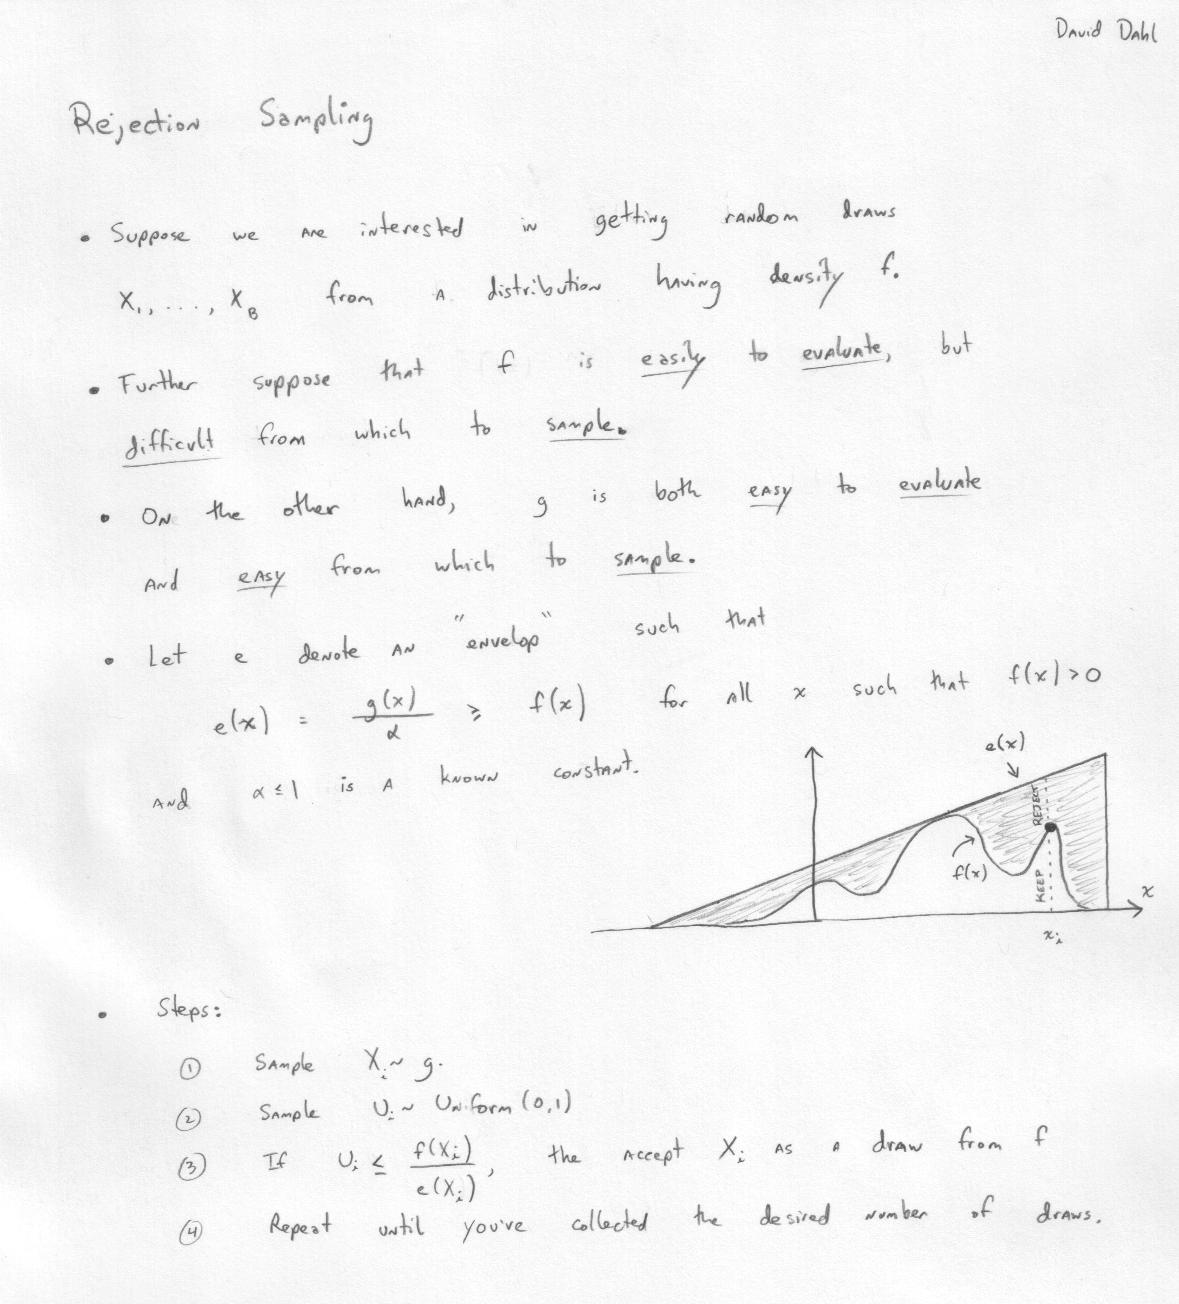 David Dahl
Rejection Sampling
• Suppose we are interested in getting random draws
X₁, ..., X_B from a distribution having density f.
• Further suppose that f is easily to evaluate, but
difficult from which to sample.
• On the other hand, g is both easy to evaluate
and easy from which to sample.
• Let e denote an "envelop" such that
e(x) = g(x)/α ≥ f(x) for all x such that f(x) > 0
and α ≤ 1 is a known constant.
e(x)
REJECT
f(x)
KEEP
x
x_i
• Steps:
① Sample X_i ~ g.
② Sample U_i ~ Uniform (0,1)
③ If U_i ≤ f(X_i)/e(X_i), the accept X_i as a draw from f
④ Repeat until you've collected the desired number of draws.